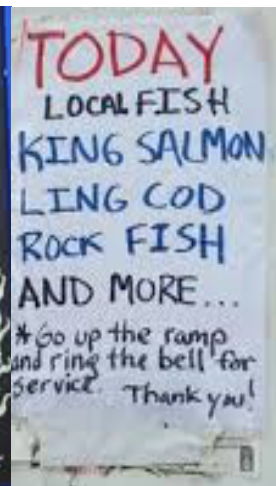 TODAY
LOCAL FISH
KING SALMON
LING COD
ROCK FISH
AND MORE...
*Go up the ramp
and ring the bell for
service. Thank you!